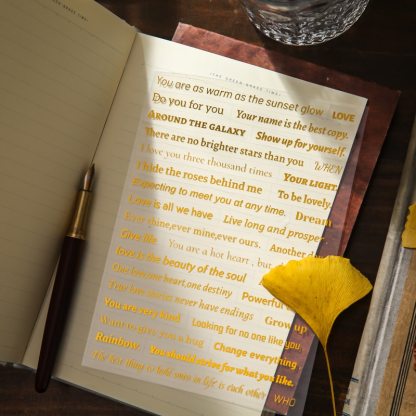 (THE GREEN-GRASS TIME)
You are as warm as the sunset glow LOVE
Do you for you Your name is the best copy.
AROUND THE GALAXY Show up for yourself.
There are no brighter stars than you WHEN
I love you three thousand times YOUR LIGHT
I hide the roses behind me To be lovely
Expecting to meet you at any time. Dream
Love is all we have Live long and prosper
Ever thine,ever mine,ever ours. Another
Give life You are a hot heart , but
love is the beauty of the soul
One love,one heart,one destiny Powerful
True love stories never have endings Grow up
You are very kind Looking for no one like you
Want to give you a hug Change everything
Rainbow You should strive for what you like.
The best thing to hold onto in life is each other
WHO